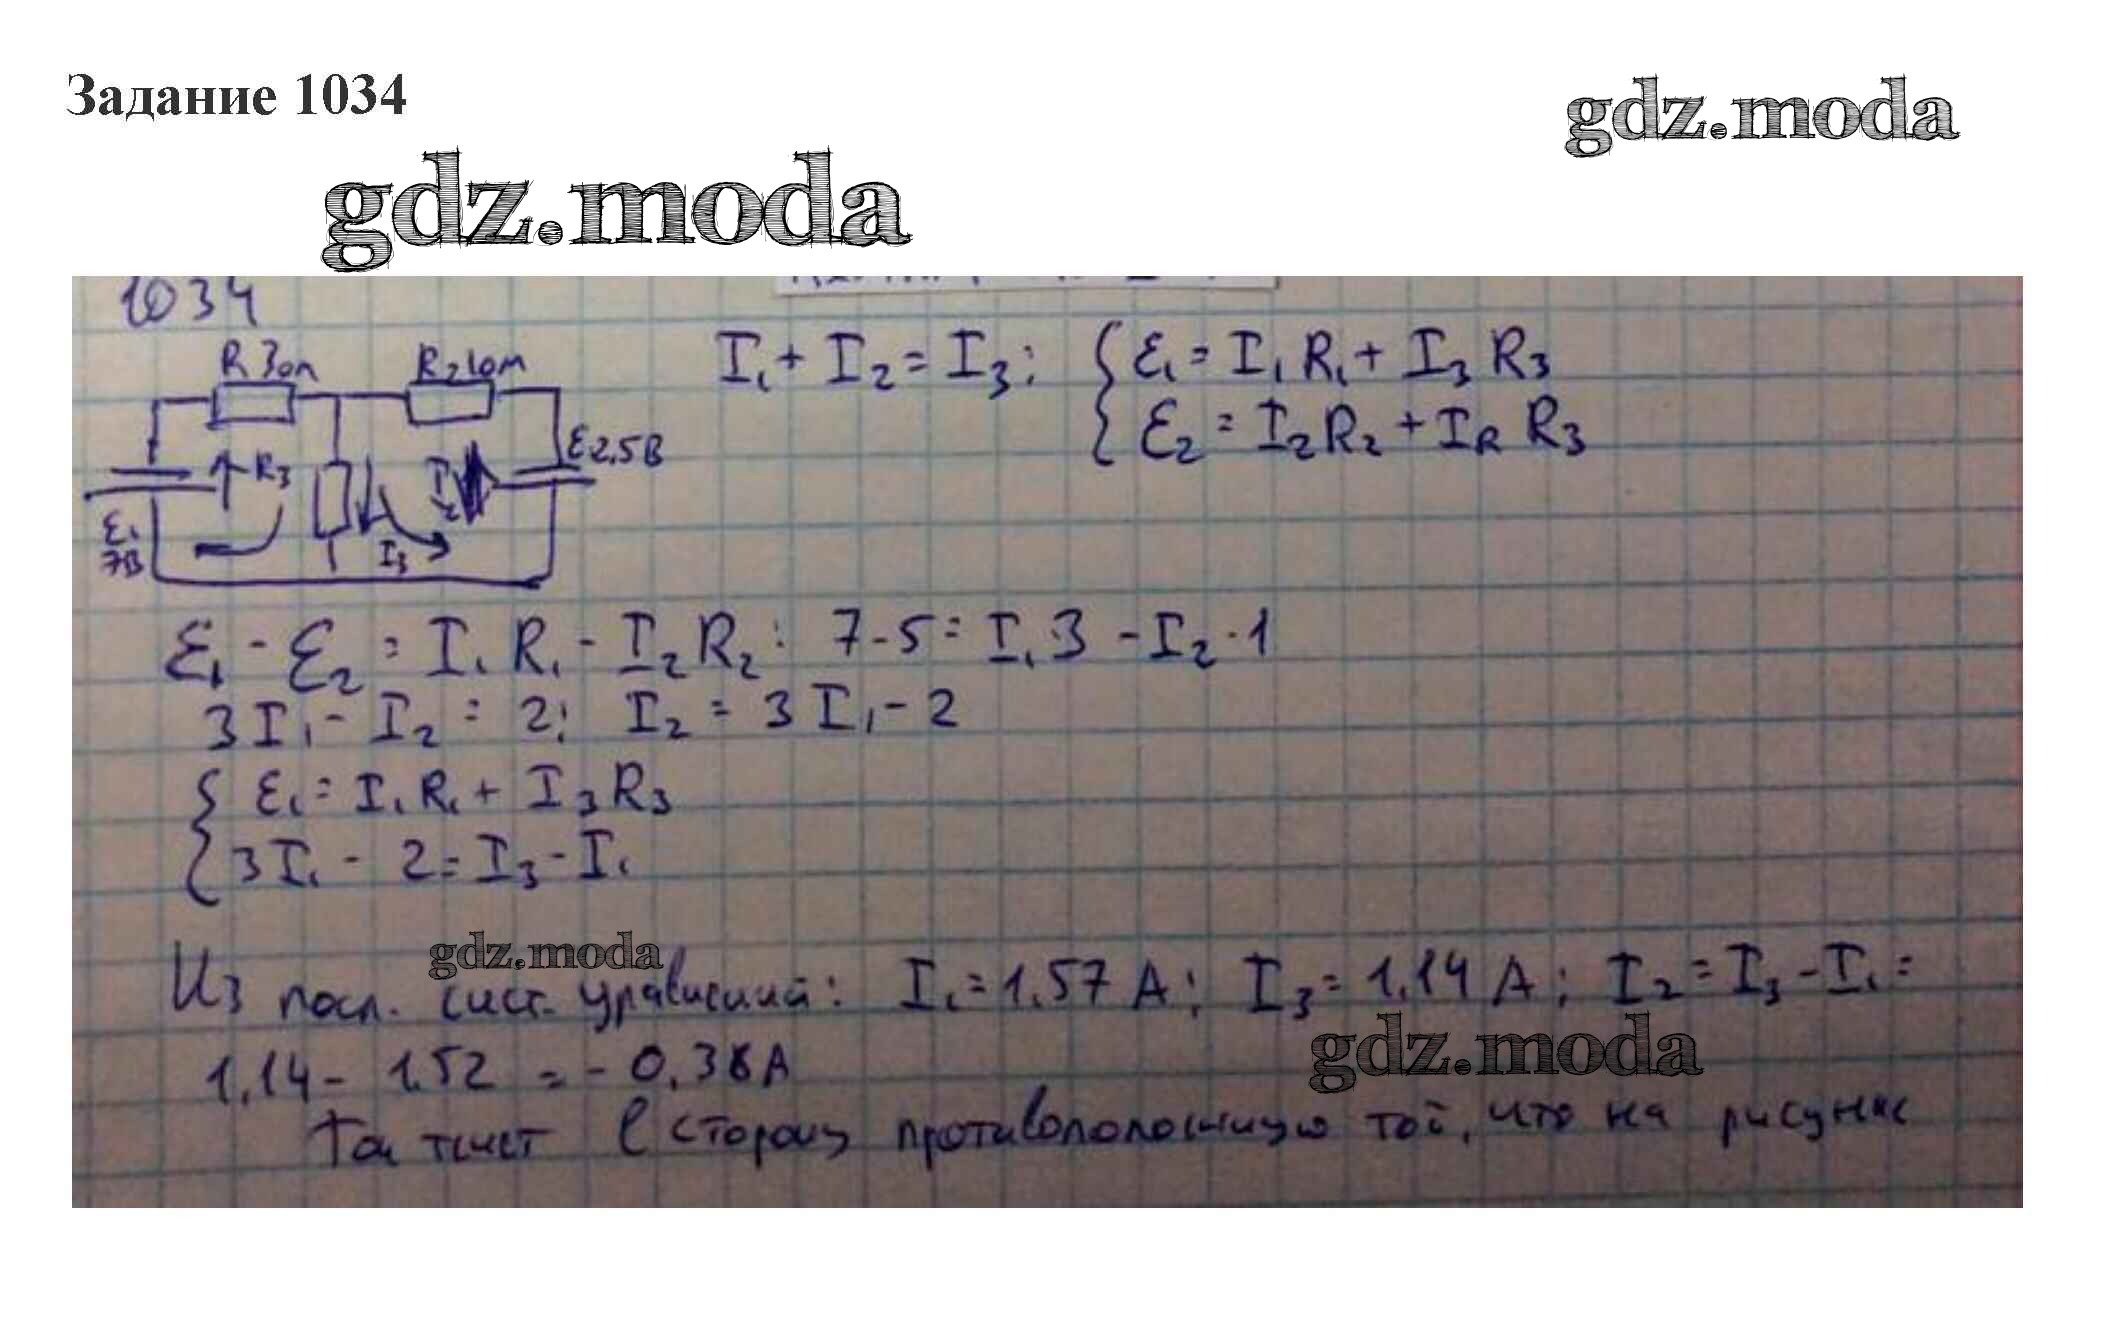 Задание 1034
gdz.moda
gdz.moda
1034
R 3Оm
R₂ 1Оm
I₁ + I₂ = I₃;
{ ℰ₁ = I₁ R₁ + I₃ R₃
{ ℰ₂ = I₂ R₂ + I_R R₃
ℰ2.5В
R₃
I₂
ℰ₁
7В
I₃
ℰ₁ - ℰ₂ = I₁ R₁ - I₂ R₂; 7-5 = I₁ 3 - I₂ · 1
3I₁ - I₂ = 2; I₂ = 3I₁ - 2
{ ℰ₁ = I₁ R₁ + I₃ R₃
{ 3I₁ - 2 = I₃ - I₁
gdz.moda
Из посл. сист. уравнений: I₁ = 1.57 А; I₃ = 1.14 А; I₂ = I₃ - I₁ =
gdz.moda
1.14 - 1.52 = - 0.38А
в сторону противоположную той, что на рисунке